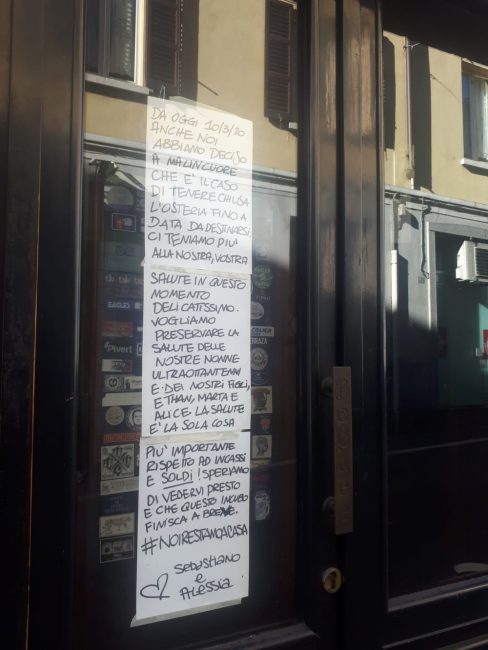 DA OGGI 10/3/20
ANCHE NOI
ABBIAMO DECISO
A MALINCUORE
CHE E' IL CASO
DI TENERE CHIUSA
L'OSTERIA FINO A
DATA DA DESTINARSI.
CI TENIAMO PIU'
ALLA NOSTRA, VOSTRA
SALUTE IN QUESTO
MOMENTO
DELICATISSIMO.
VOGLIAMO
PRESERVARE LA
SALUTE DELLE
NOSTRE NONNE
ULTRAOTTANTENNI
E DEI NOSTRI FIGLI,
ETHAN, MARTA E
ALICE. LA SALUTE
E' LA SOLA COSA
PIU' IMPORTANTE
RISPETTO AD INCASSI
E SOLDI! SPERIAMO
DI VEDERVI PRESTO
E CHE QUESTO INCUBO
FINISCA A BREVE.
#NOIRESTIAMOACASA
Sebastiano
e
Alessia
EAGLES
Pivert